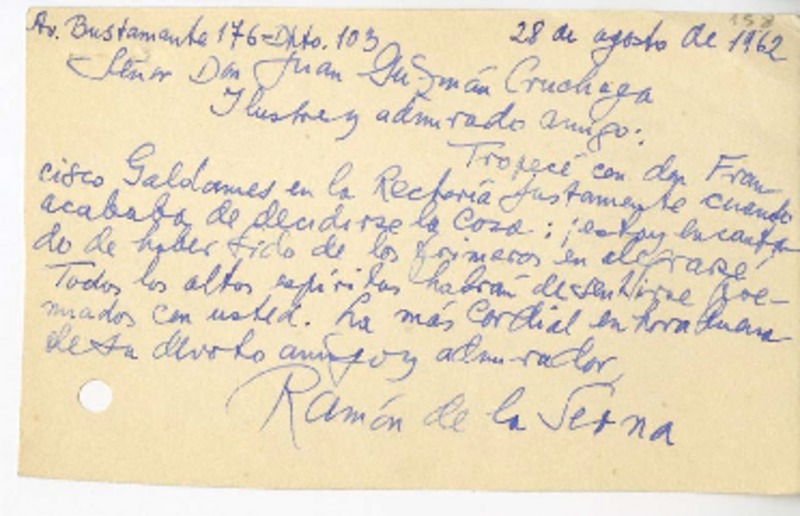 158
Av. Bustamante 176=Dpto. 103 28 de agosto de 1962
Señor Don Juan Guzmán Cruchaga
Ilustre y admirado amigo:
Tropecé con don Fran
cisco Galdames en la Rectoría justamente cuando
acababa de decidirse la cosa: ¡estoy encanta
do de haber sido de los primeros en alegrarse!
Todos los altos espíritus habrán de sentirse pre-
miados con usted. La más cordial enhorabuena
de su devoto amigo y admirador,
Ramón de la Serna